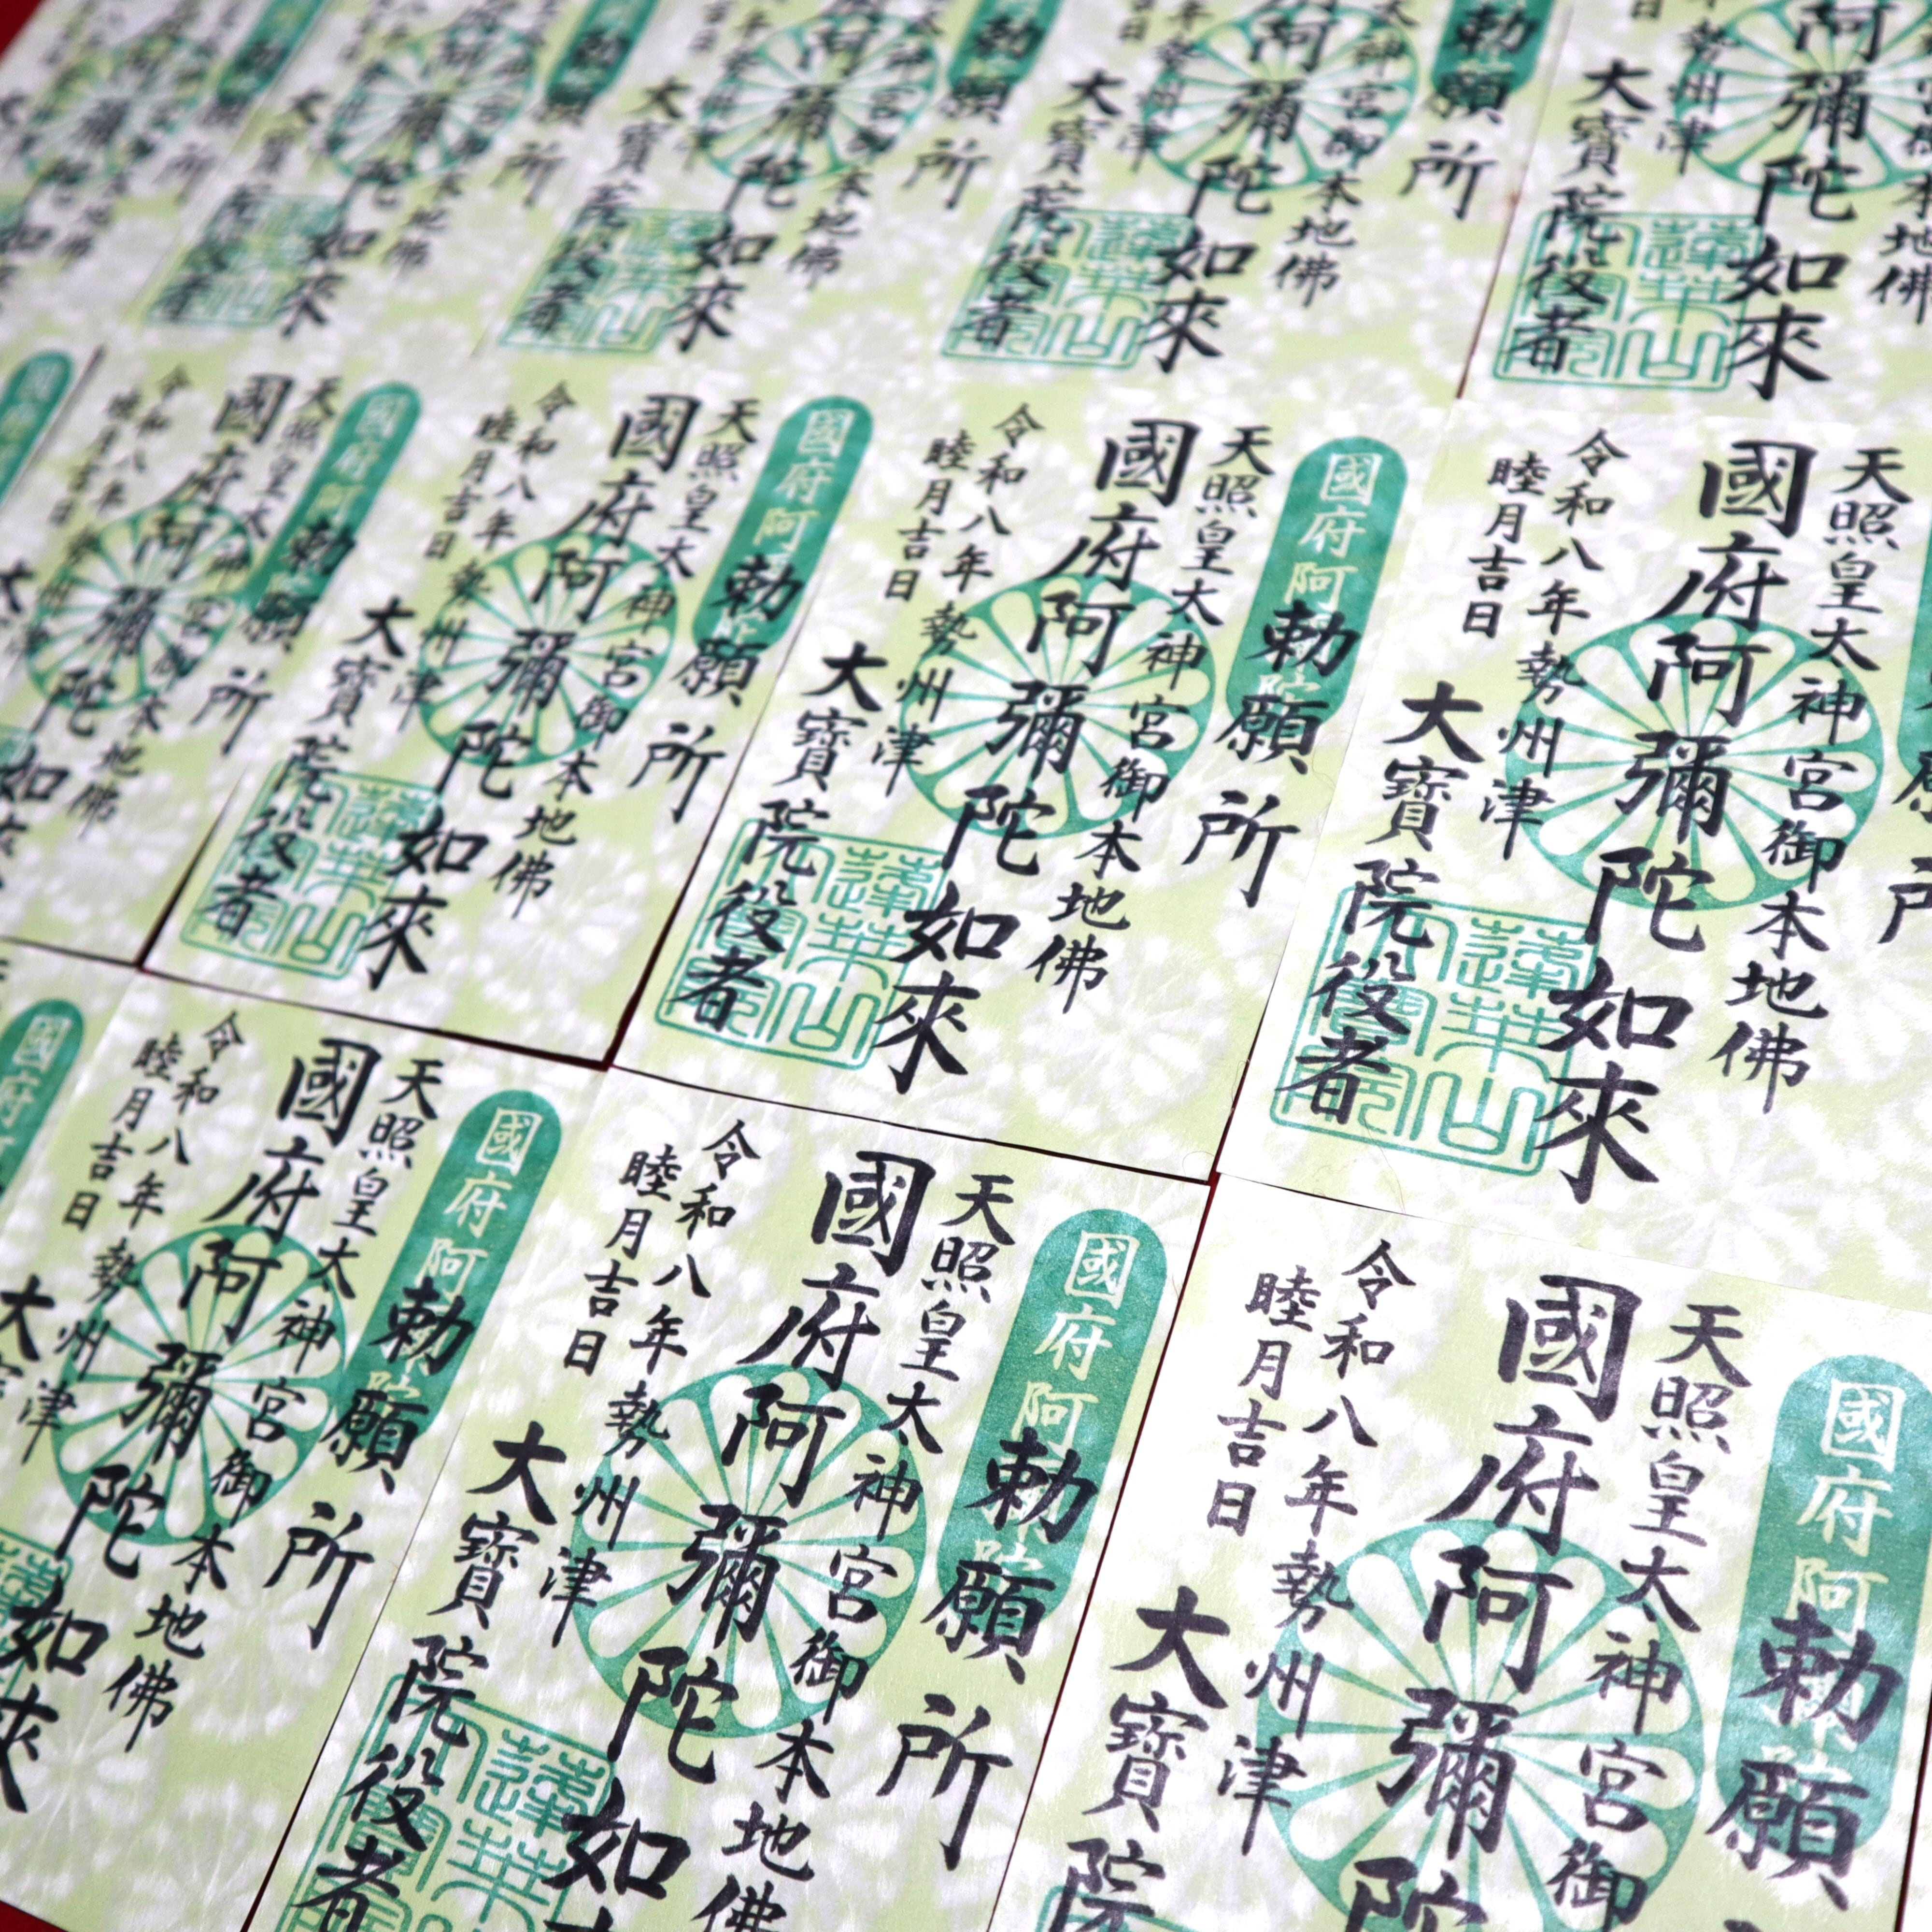 國府阿
勅願所
天照皇大神宮御本地佛
國府阿彌陀如來
令和八年
睦月吉日
勢州津
大寳院役者
蓮華山